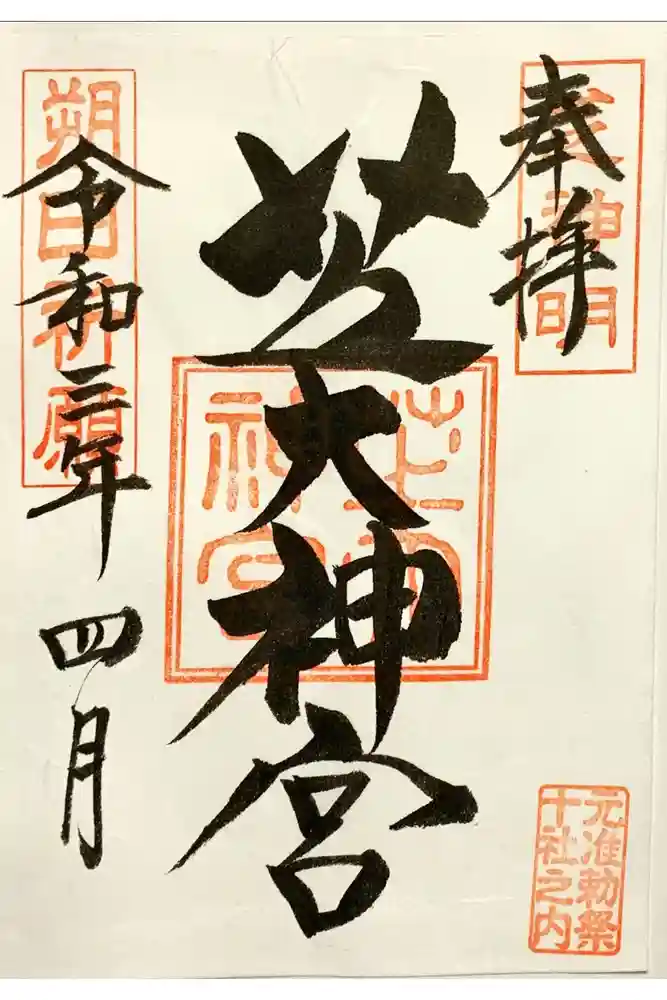 奉拝
芝神明
芝大神宮
芝大神宮
令和三年四月
朔日祈願
元准勅祭
十社之内